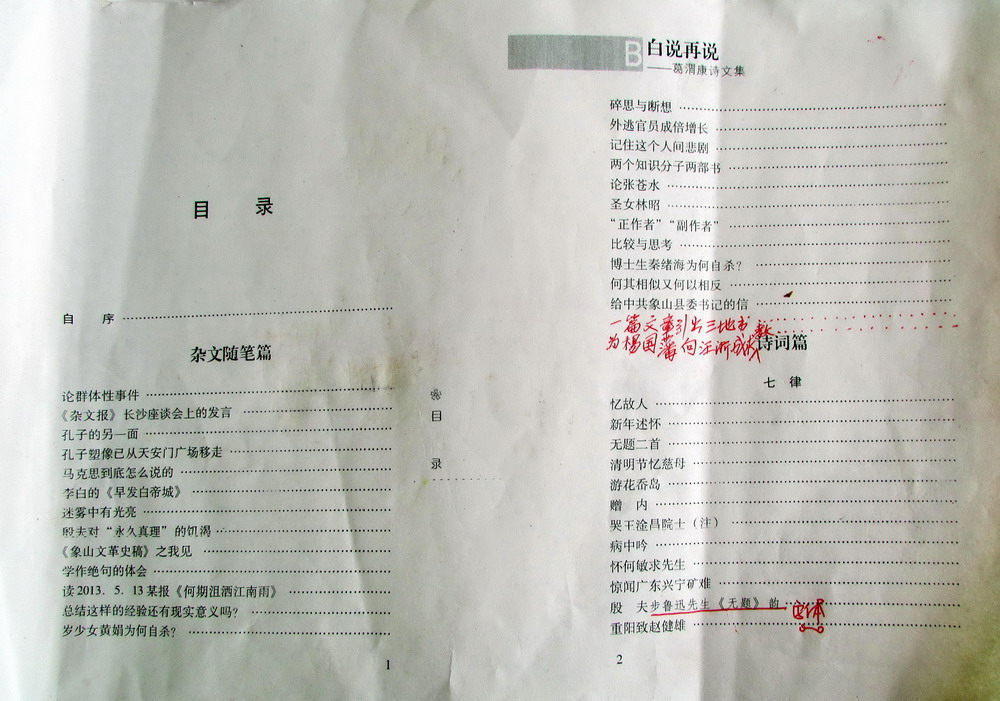 目 录
自 序
杂文随笔篇
论群体性事件
《杂文报》长沙座谈会上的发言
孔子的另一面
孔子塑像已从天安门广场移走
马克思到底怎么说的
李白的《早发白帝城》
迷雾中有光亮
殷夫对“永久真理”的饥渴
《象山文革史稿》之我见
学作绝句的体会
读 2013．5．13 某报《何期泪洒江南雨》
总结这样的经验还有现实意义吗？
岁少女黄娟为何自杀？
目 录
1
B 白说再说
——葛渭康诗文集
碎思与断想
外逃官员成倍增长
记住这个人间悲剧
两个知识分子两部书
论张苍水
圣女林昭
“正作者”“副作者”
比较与思考
博士生秦绪海为何自杀？
何其相似又何以相反
给中共象山县委书记的信
一篇文章引出三地书
为杨国藩向汪浙成
诗词篇
七 律
忆故人
新年述怀
无题二首
清明节忆慈母
游花岙岛
赠 内
哭王淦昌院士（注）
病中吟
怀何敏求先生
惊闻广东兴宁矿难
殷 夫步鲁迅先生《无题》的
重阳致赵健雄
2